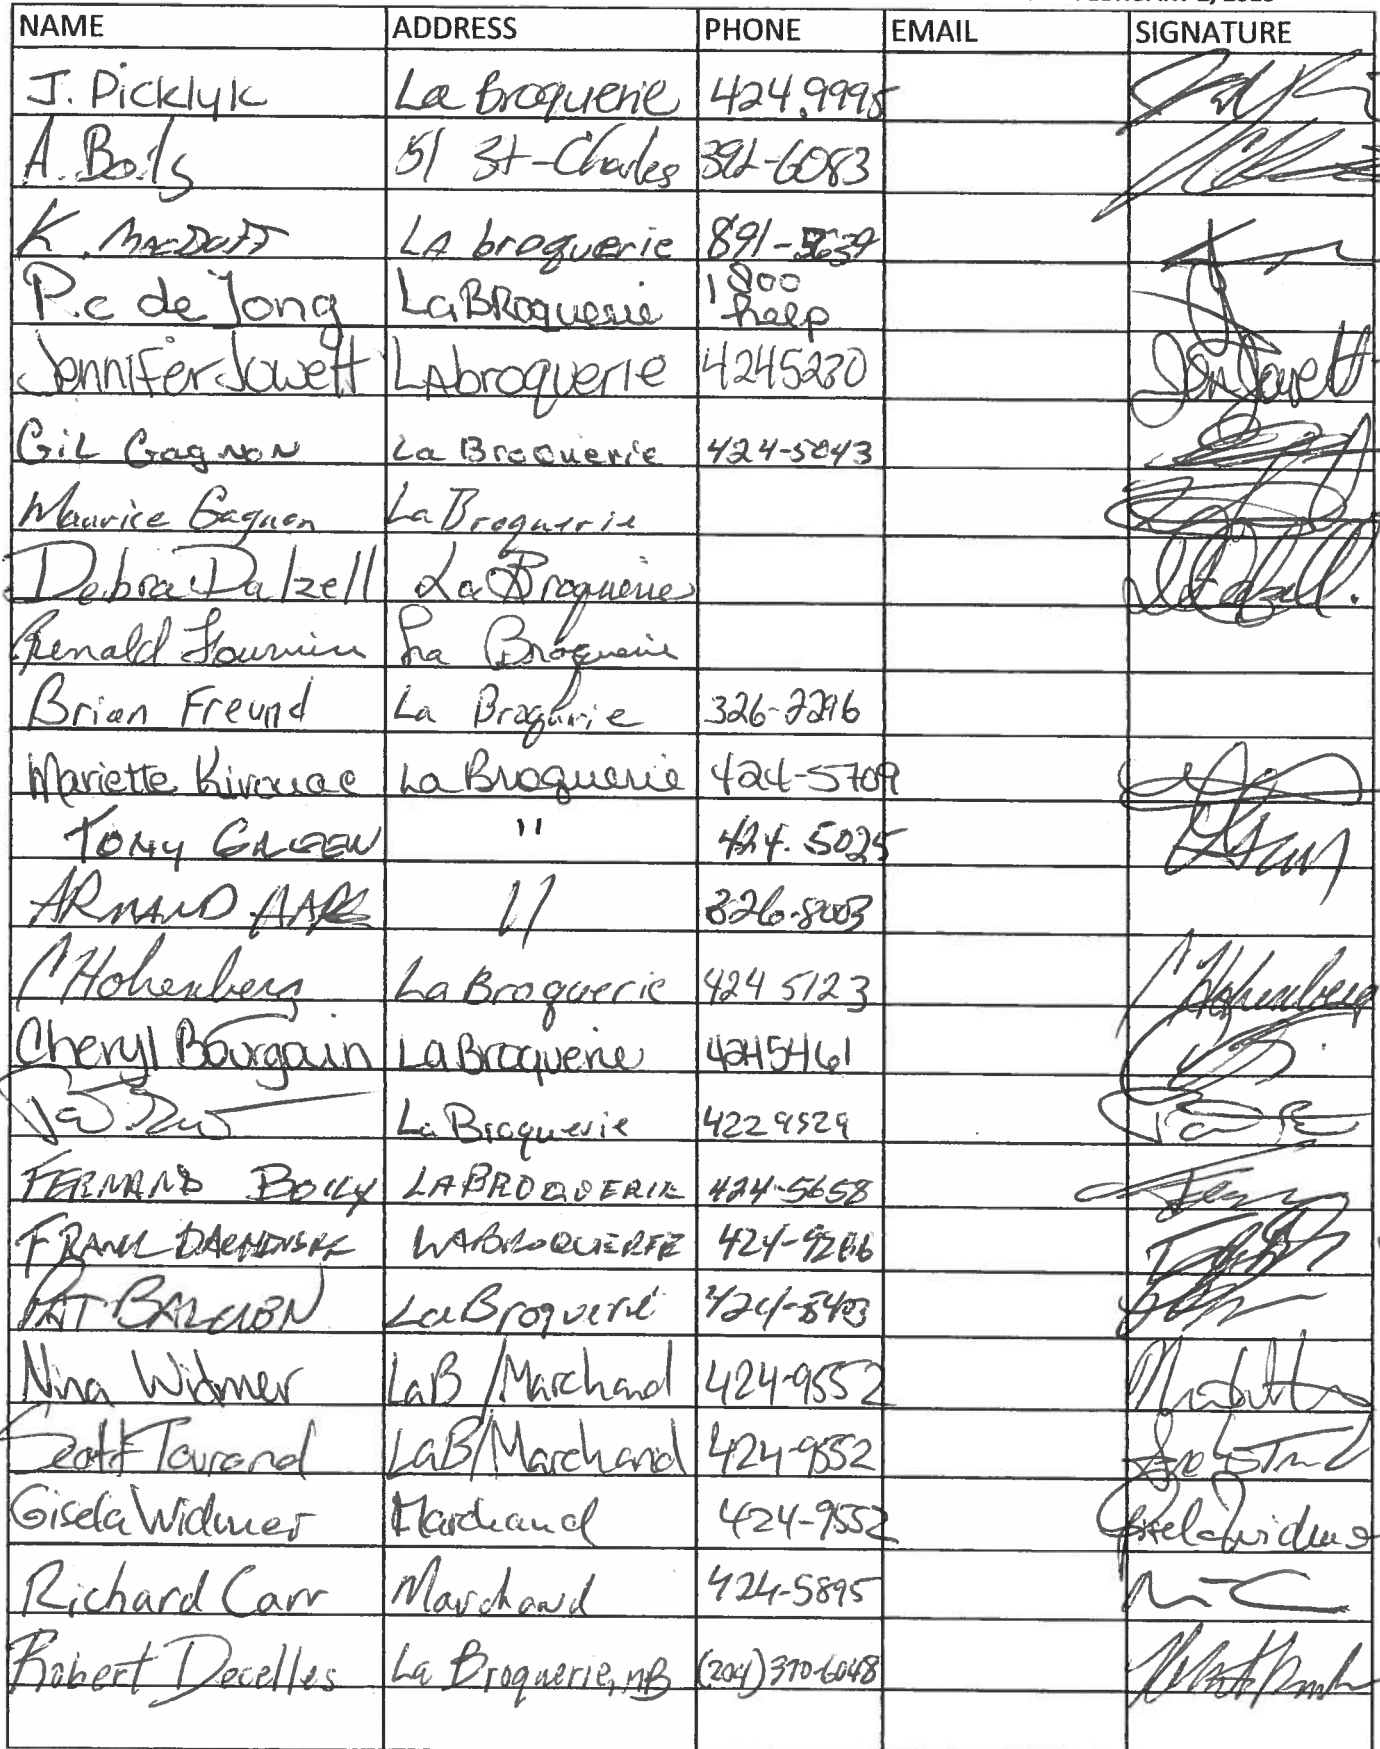 NAME ADDRESS PHONE EMAIL SIGNATURE
J. Picklyk La Broquerie 424.9995
A. Boily 51 St-Charles 392-6083
K. MacDuff LA broquerie 891-5637
P.c de Jong LaBRoquerie 1 800 help
Jennifer Jowett LAbroquerie 4245230 Jen Jowett
GiL Gagnon La Broquerie 424-5043
Maurice Gagnon La Broquerie
Debra Dalzell La Broquerie
Renald Fournier La Broquerie
Brian Freund La Broquerie 326-2296
Mariette Kirouac La Broquerie 424-5709
Tony " 424.5025
ARMAND AARS " 326-8003
C Hohenberg La Broquerie 424 5123 C Hohenberg
Cheryl Bourgouin La Broquerie 4245461
La Broquerie 4229529
FERNAND BOILY LABROQUERIE 424-5658
FRANK LABROQUERIE 424-9266
PAT La Broquerie 424-8403
Nina Widmer LaB/Marchand 424-9552
Scott Tourond LaB/Marchand 424-9552
Gisela Widmer Marchand 424-9552 Gisela Widmer
Richard Carr Marchand 424-5895
Robert Decelles La Broquerie, MB (204) 370-6048